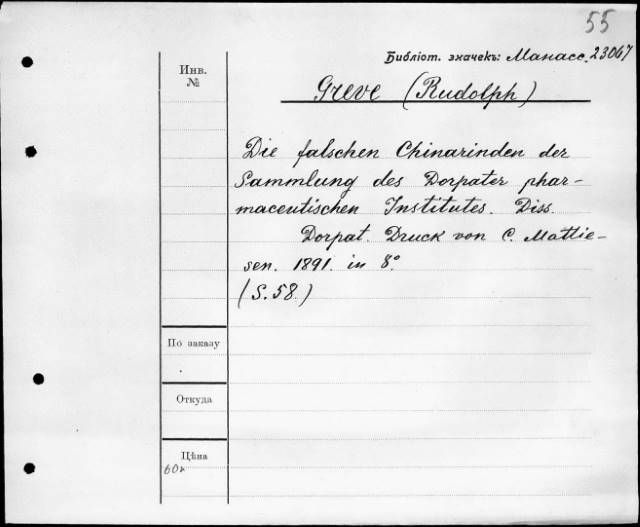 55
Библіот. значекъ: Манасс. 23067
Инв.
№
Greve (Rudolph)
Die falschen Chinarinden der
Sammlung des Dorpater phar-
maceutischen Institutes. Diss.
Dorpat. Druck von C. Mattie-
sen. 1891. in 8°
(S. 58.)
По заказу
Откуда
Цѣна
60к